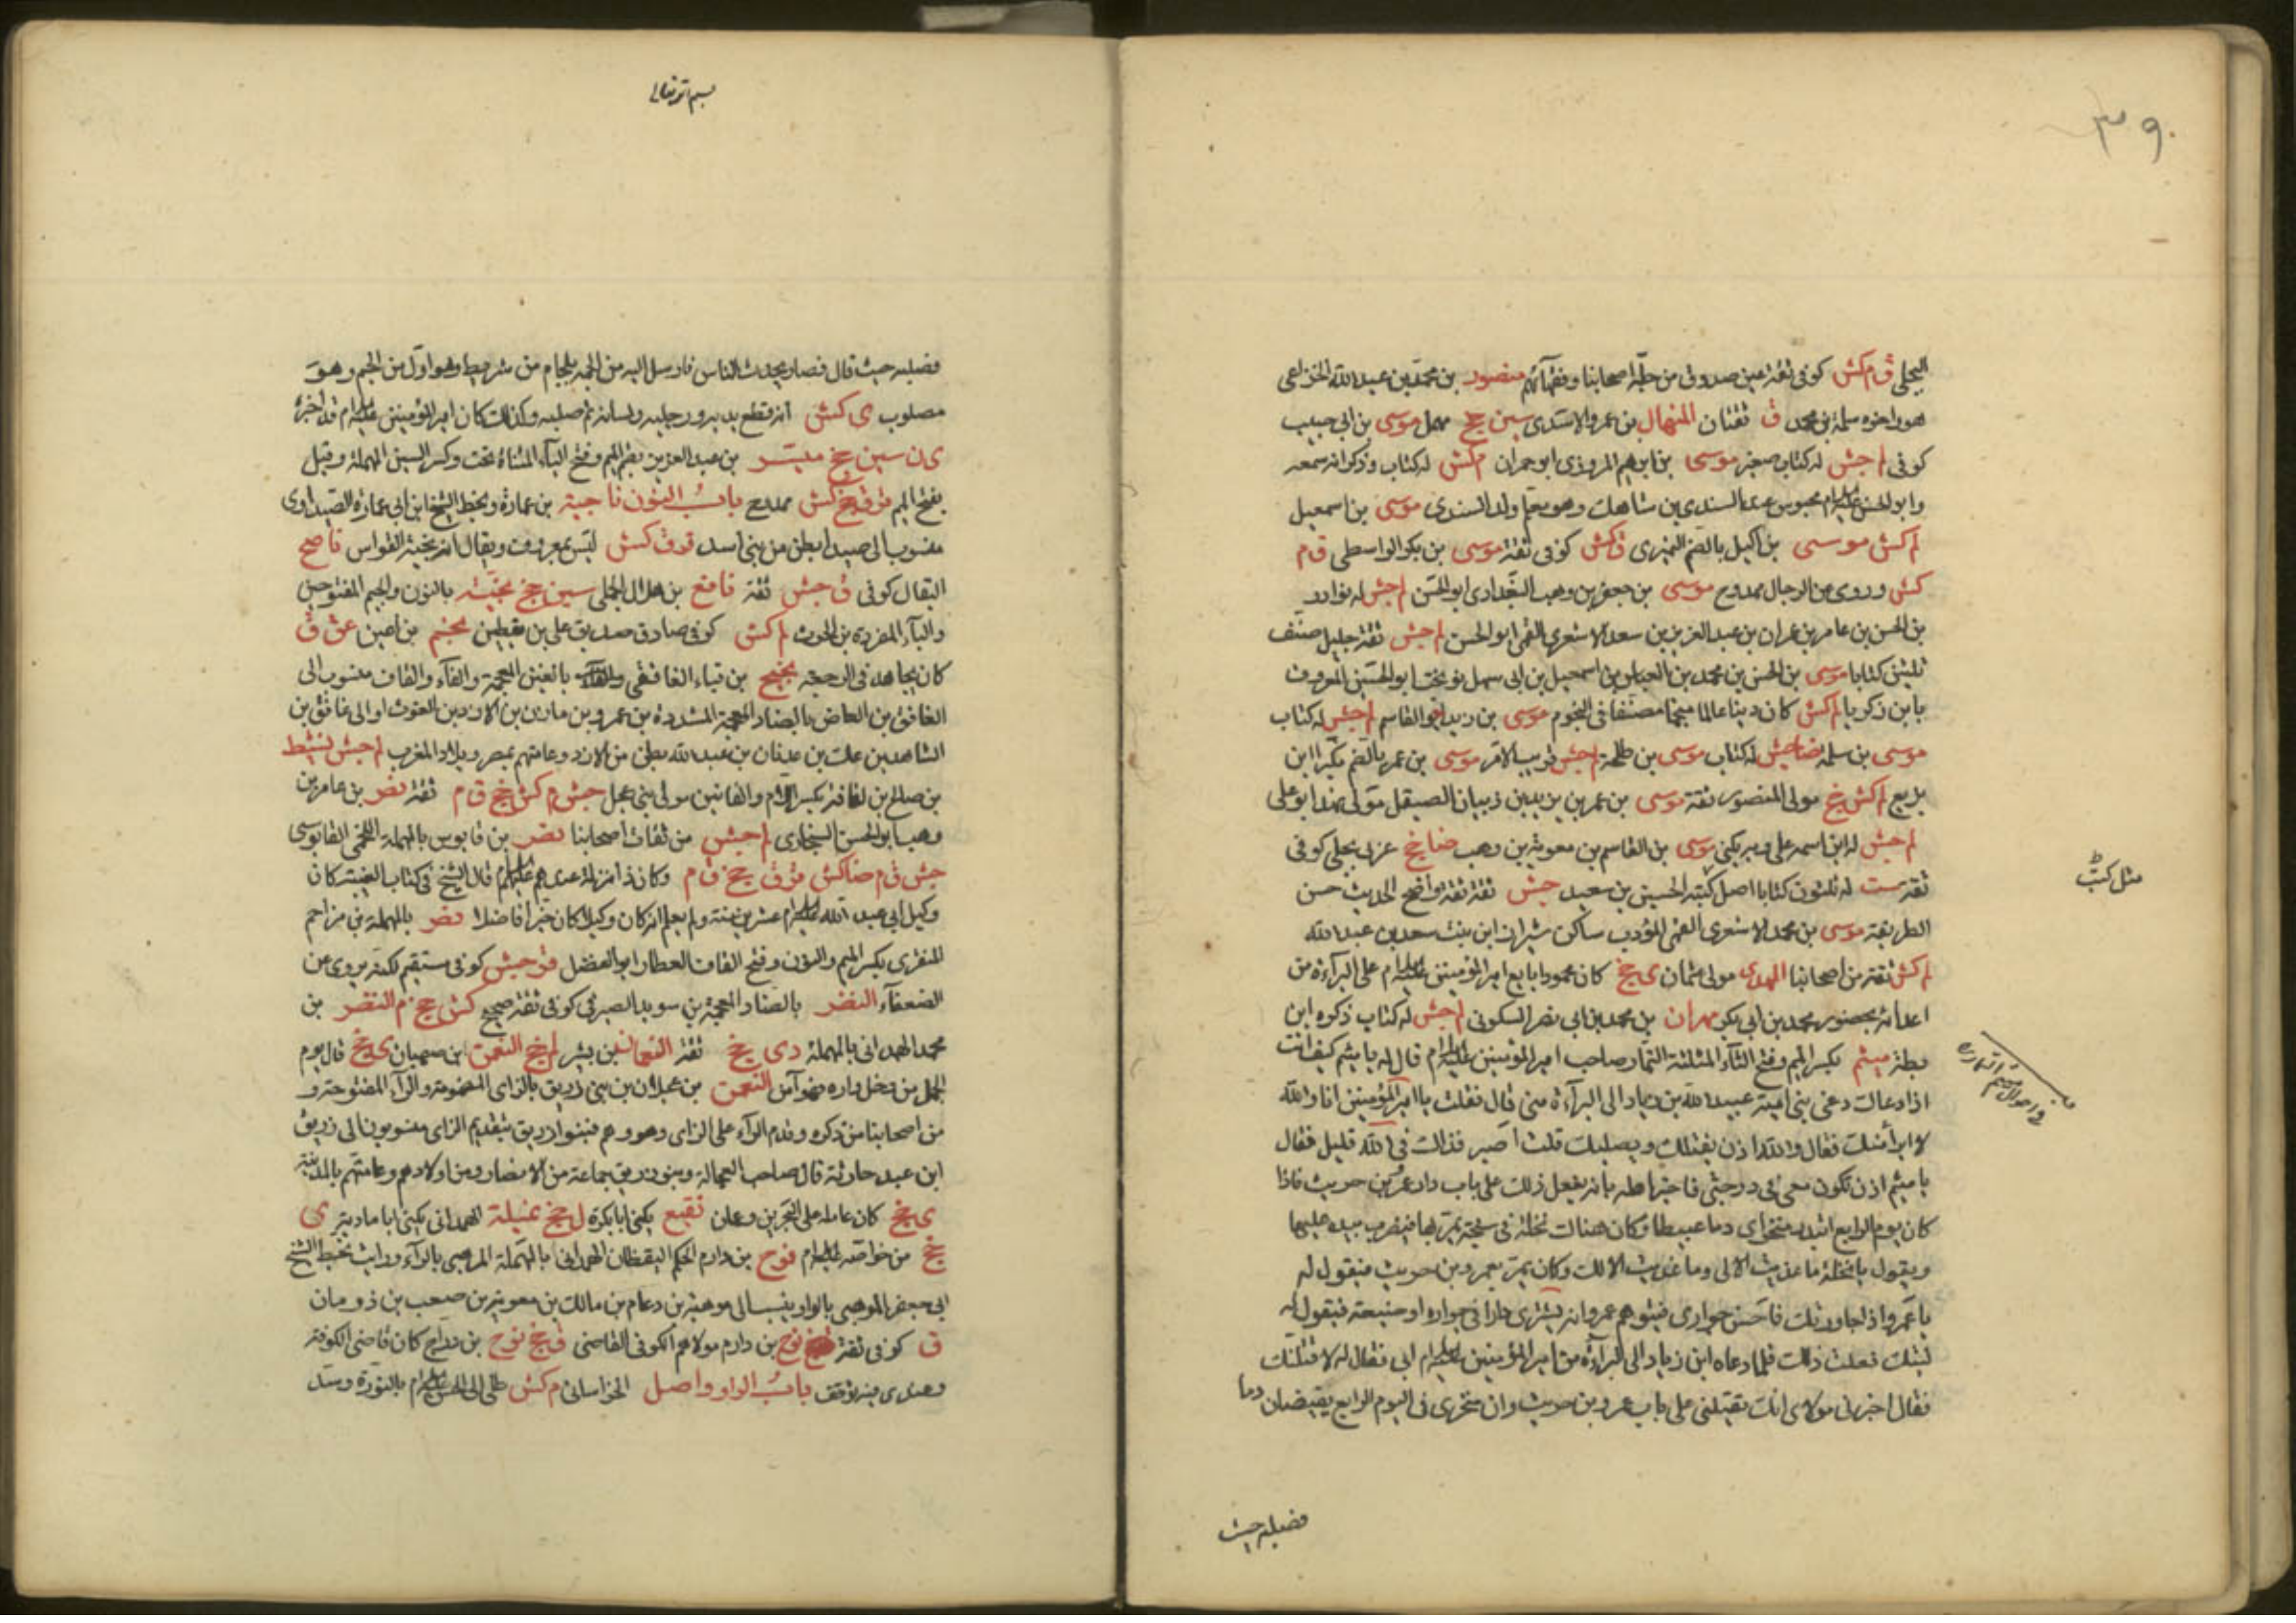 ٣٩٠
البجلى ق م كش كوفى ثقة عين صدوق من جلة اصحابنا وفقهائهم منصور بن محمد بن عبدالله الخزاعى
هو واخوه سلمة بن محمد ق ثقتان المنهال بن عمرو الاسدى سين جخ مهمل موسى بن ابى حبيب
كوفى لم جش له كتاب صغير موسى بن ابراهيم المروزى ابو حمران م كش له كتاب وذكر انه سمعه
وابو الحسن عليه السلام محبوس عند السندى بن شاهك وهو معلم ولد السندى موسى بن اسمعيل
لم كش موسى بن اكيل بالضم النميرى ق كش كوفى ثقة موسى بن بكر الواسطى ق م
كش وروى عن الرجال ممدوح موسى بن جعفر بن وهب البغدادى ابو الحسن لم جش له نوادر
بن الحسن بن عامر بن عمران بن عبد العزيز بن سعد الاشعرى القمى ابو الحسن لم جش ثقة جليل صنف
ثلثين كتابا موسى بن الحسن بن محمد بن العباس بن اسمعيل بن ابى سهل نوبخت ابو الحسن المعروف
بابن زكريا لم كش كان دينا عالما منجما مصنفا فى النجوم موسى بن زيد ابو القاسم لم جش له كتاب
موسى بن سلمة ضا جش له كتاب موسى بن طلحة لم جش قريب الامر موسى بن عمر بالضم مكبرا ابن
بزيع لم كش جخ مولى المنصور ثقة موسى بن عمر بن يزيد بن ذبيان الصيقل مولى نهد ابو على
لم جش له ابن اسمه على وبه يكنى موسى بن القاسم بن معوية بن وهب ضا جخ عربى بجلى كوفى
ثقة ست له ثلثون كتابا اصل كتبه الحسين بن سعيد جش ثقة ثقة واضح الحديث حسن
الطريقة موسى بن محمد الاشعرى القمى المؤدب ساكن شيراز ابن بنت سعد بن عبد الله
لم كش ثقة من اصحابنا المهدى مولى عثمان ى جخ كان محمودا بايع امير المؤمنين عليه السلام على البراءة من
اعدائه بحضور محمد بن ابى بكر مهران بن محمد بن ابى نصر السكونى لم جش له كتاب ذكره ابن
بطة ميثم بكسر الميم وفتح الثآء المثلثة التمار صاحب امير المؤمنين عليه السلام قال له يا ميثم كيف انت
اذا دعاك دعى بنى امية عبيد الله بن زياد الى البرآءة منى قال فقلت يا امير المؤمنين انا والله
لا ابرأ منك فقال والله اذن يقتلك ويصلبك قلت اصبر فذاك فى الله قليل فقال
يا ميثم اذن تكون معى فى درجتى فاخبر اهله بانه يفعل ذلك على باب دار عمرو بن حريث فاذا
كان يوم الرابع ابتدر منخراى دما عبيطا وكان هناك نخلة فى سبخة يمر بها فيضرب بيده عليها
ويقول يا نخلة ما غذيت الا لى وما غذيت الا لك وكان يمر بعمرو بن حريث فيقول له
يا عمرو اذا جاورتك فاحسن جوارى فيتوهم عمرو انه يشترى دارا فى جواره او ضيعة فيقول له
ليتك فعلت ذلك فلما دعاه ابن زياد الى البرآءة من امير المؤمنين عليه السلام ابى فقال له لاقتلنك
فقال اخبرنى مولاى انك تقتلنى على باب عمرو بن حريث وان منخرى فى اليوم الرابع يقبضان دما
مثل كتب
فصلبه حيث
بسم الله تعالى
فصلبه حيث قال فصار يحدث الناس فارسل اليه من الجمه بلجام من شريط وهو اول من الجم وهو
مصلوب ى كش انه قطع يديه ورجليه ولسانه ثم صلبه وكذلك كان امير المؤمنين عليه السلام قد اخبره
ى ن سين جخ ميسر بن عبد العزيز بضم الميم وفتح اليآء المثناة تحت وكسر السين المهملة وقيل
بفتح الميم قر ق جخ كش ممدوح باب النون ناجية بن عمارة وبخط الشيخ ابن ابى عمارة الصيداوى
منسوب الى صيدا بطن من بنى اسد قر ق كش ليس بمعروف ويقال انه نجية القواس ناصح
البقال كوفى ق جش ثقة نافع بن هلال الجملى سين جخ نجبة بالنون والجيم المفتوحين
والبآء المفردة بن الحرث م كش كوفى صادق صديق على بن يقطين نجم بن اعين عق ق
كان يجاهد فى الرجعة نجيح بن قباء الغافقى بالغين المعجمة والفآء والقاف منسوب الى
الغافق بن العاص بالضاد المعجمة المشددة بن عمرو بن مازن بن الازد بن الغوث او الى غافق بن
الشاهد بن علك بن عدنان بن عبد الله بطن من الازد وعامتهم بمصر وبلاد المغرب لم جش نشيط
بن صالح بن لفافة بكسر اللام والفائين مولى بنى عجل جش م كش جخ ق م ثقة نصر بن عامر بن
وهب ابو الحسن السنجارى لم جش من ثقات اصحابنا نصر بن قابوس بالمهملة اللخمى القابوسى
جش ق م ضا كش قر ق جخ ق م وكان ذا منزلة عندهم عليهم السلام قال الشيخ فى كتاب الغيبة كان
وكيل ابى عبد الله عليه السلام عشرين سنة ولم يعلم انه كان وكيلا كان خيرا فاضلا نصر بالمهملة بن مزاحم
المنقرى بكسر الميم والنون وفتح القاف العطار ابو الفضل قر جش كوفى مستقيم لكنه يروى عن
الضعفآء النضر بالضاد المعجمة بن سويد الصيرفى كوفى ثقة صحيح كش جخ م النضر بن
محمد الهمدانى بالمهملة دى جخ ثقة النعمان بن بشير ل جخ النعمن ابن صهبان ى جخ قال يوم
الجمل من دخل داره فهو آمن النعمن بن عجلان بن بنى زريق بالزاى المضمومة والرآء المفتوحة و
من اصحابنا من ذكره وقدم الرآء على الزاى وهو وهم فبنوا زريق بتقديم الزاى منسوبون الى زريق
ابن عبد حارثة قال صاحب العجالة وبنو زريق جماعة من الانصار ومن اولادهم وعامتهم بالمدينة
ى جخ كان عامله على البحرين وعمان نفيع يكنى ابا بكرة ل جخ نميلة الهمدانى يكنى ابا مارية ى
جخ من خواصه عليه السلام نوح بن دارم الحكم اليقظان الهمدانى بالمهملة المرهبى بالرآء ورايت بخط الشيخ
ابى جعفر الموهبى بالواو ينسب الى موهبة بن دعام بن مالك بن معوية بن صعب بن ذومان
ق كوفى ثقة نوح بن دارم مولاهم الكوفى القاضى ق جخ نوح بن دراج كان قاضى الكوفة
وعندى فيه توقف باب الواو واصل الخراسانى م كش طلى ابى الحسن عليه السلام بالنورة وسد